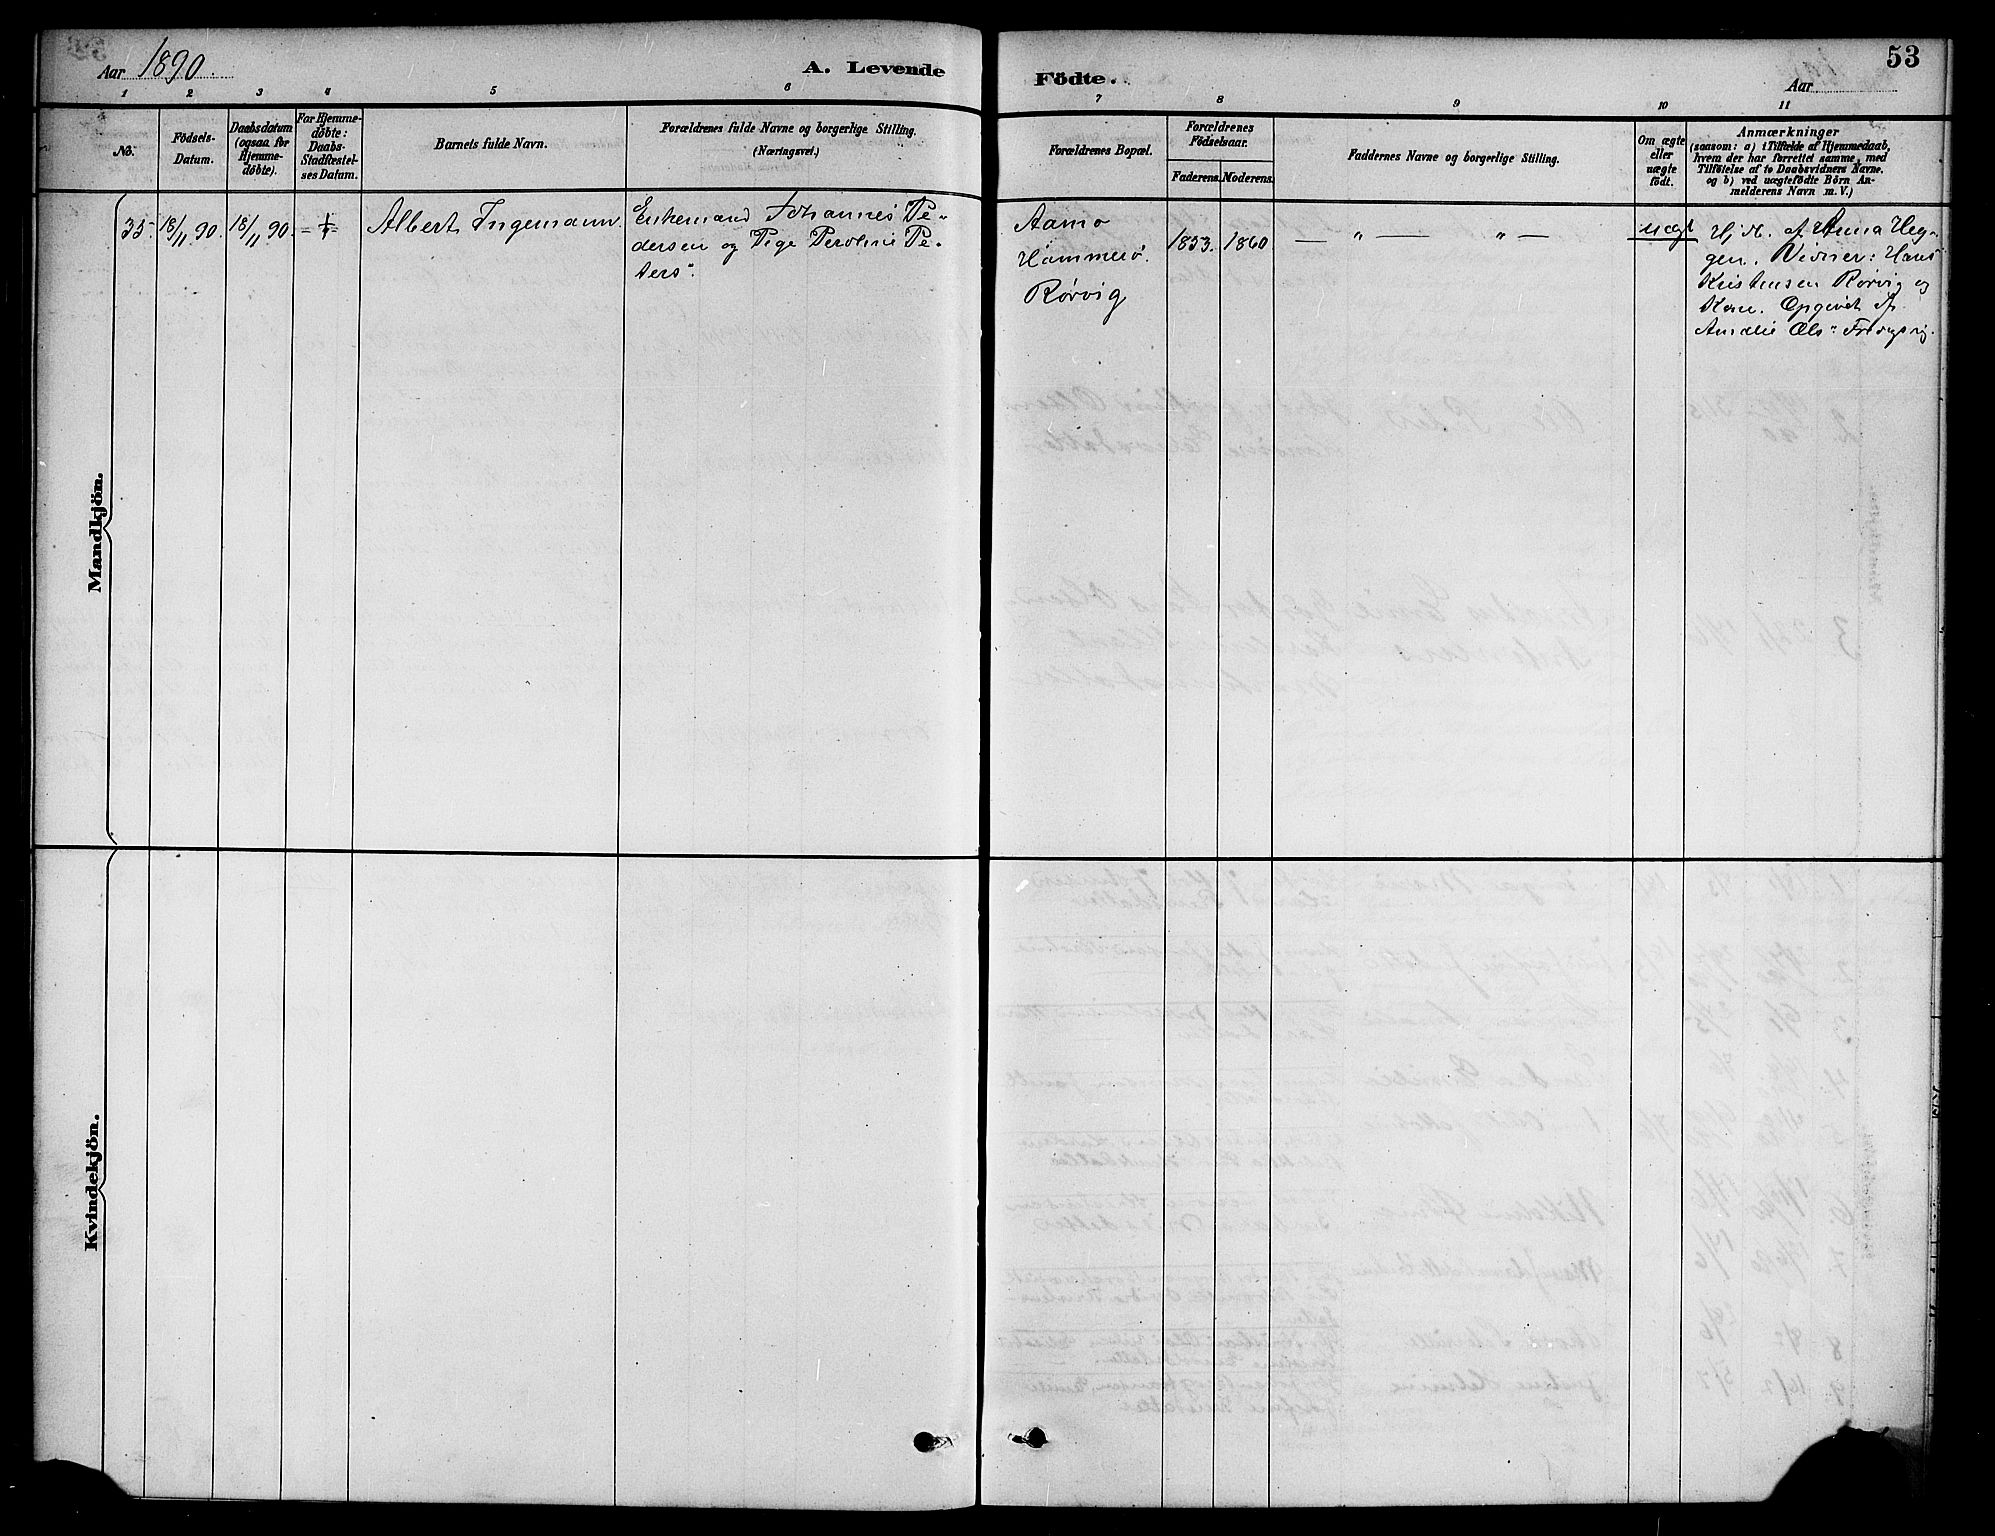 Aar 1890.
A. Levende
Födte.
53
Aar
1 2 3 4 5 6
7 8 9 10 11
No.
Födsels-
Datum.
Daabsdatum
(ogsaa for
Hjemme-
døbte).
For Hjemme-
døbte:
Daabs-
Stadfæstel-
ses Datum.
Barnets fulde Navn.
Forældrenes fulde Navne og borgerlige Stilling.
(Næringsvei.)
Forældrenes Bopæl.
Forældrenes
Födselsaar.
Faderens. Moderens.
Faddernes Navne og borgerlige Stilling.
Om ægte
eller
uægte
födt.
Anmærkninger
(saasom: a) i Tilfælde af Hjemmedaab,
hvem der har forrettet samme, med
Tilföielse af to Daabsvidners Navne.
og b) ved uægtefödte Börn An-
melderens Navn m. V.)
Mandkjön.
35. 18/11 90. 18/11 90. Albert Ingemann.
Enkemand Johannes Pe-
dersen og Pige Peroline Pe-
ders".
Aamo
Hammerö.
Rørvig
1853. 1860
— " — " —
uægt
Hj. d. af Anna Heg-
gen. Vidner: Hans
Kristensen Rørvig og
Kone. Opgivet af
Amalie Ols"
Kvindekjön.